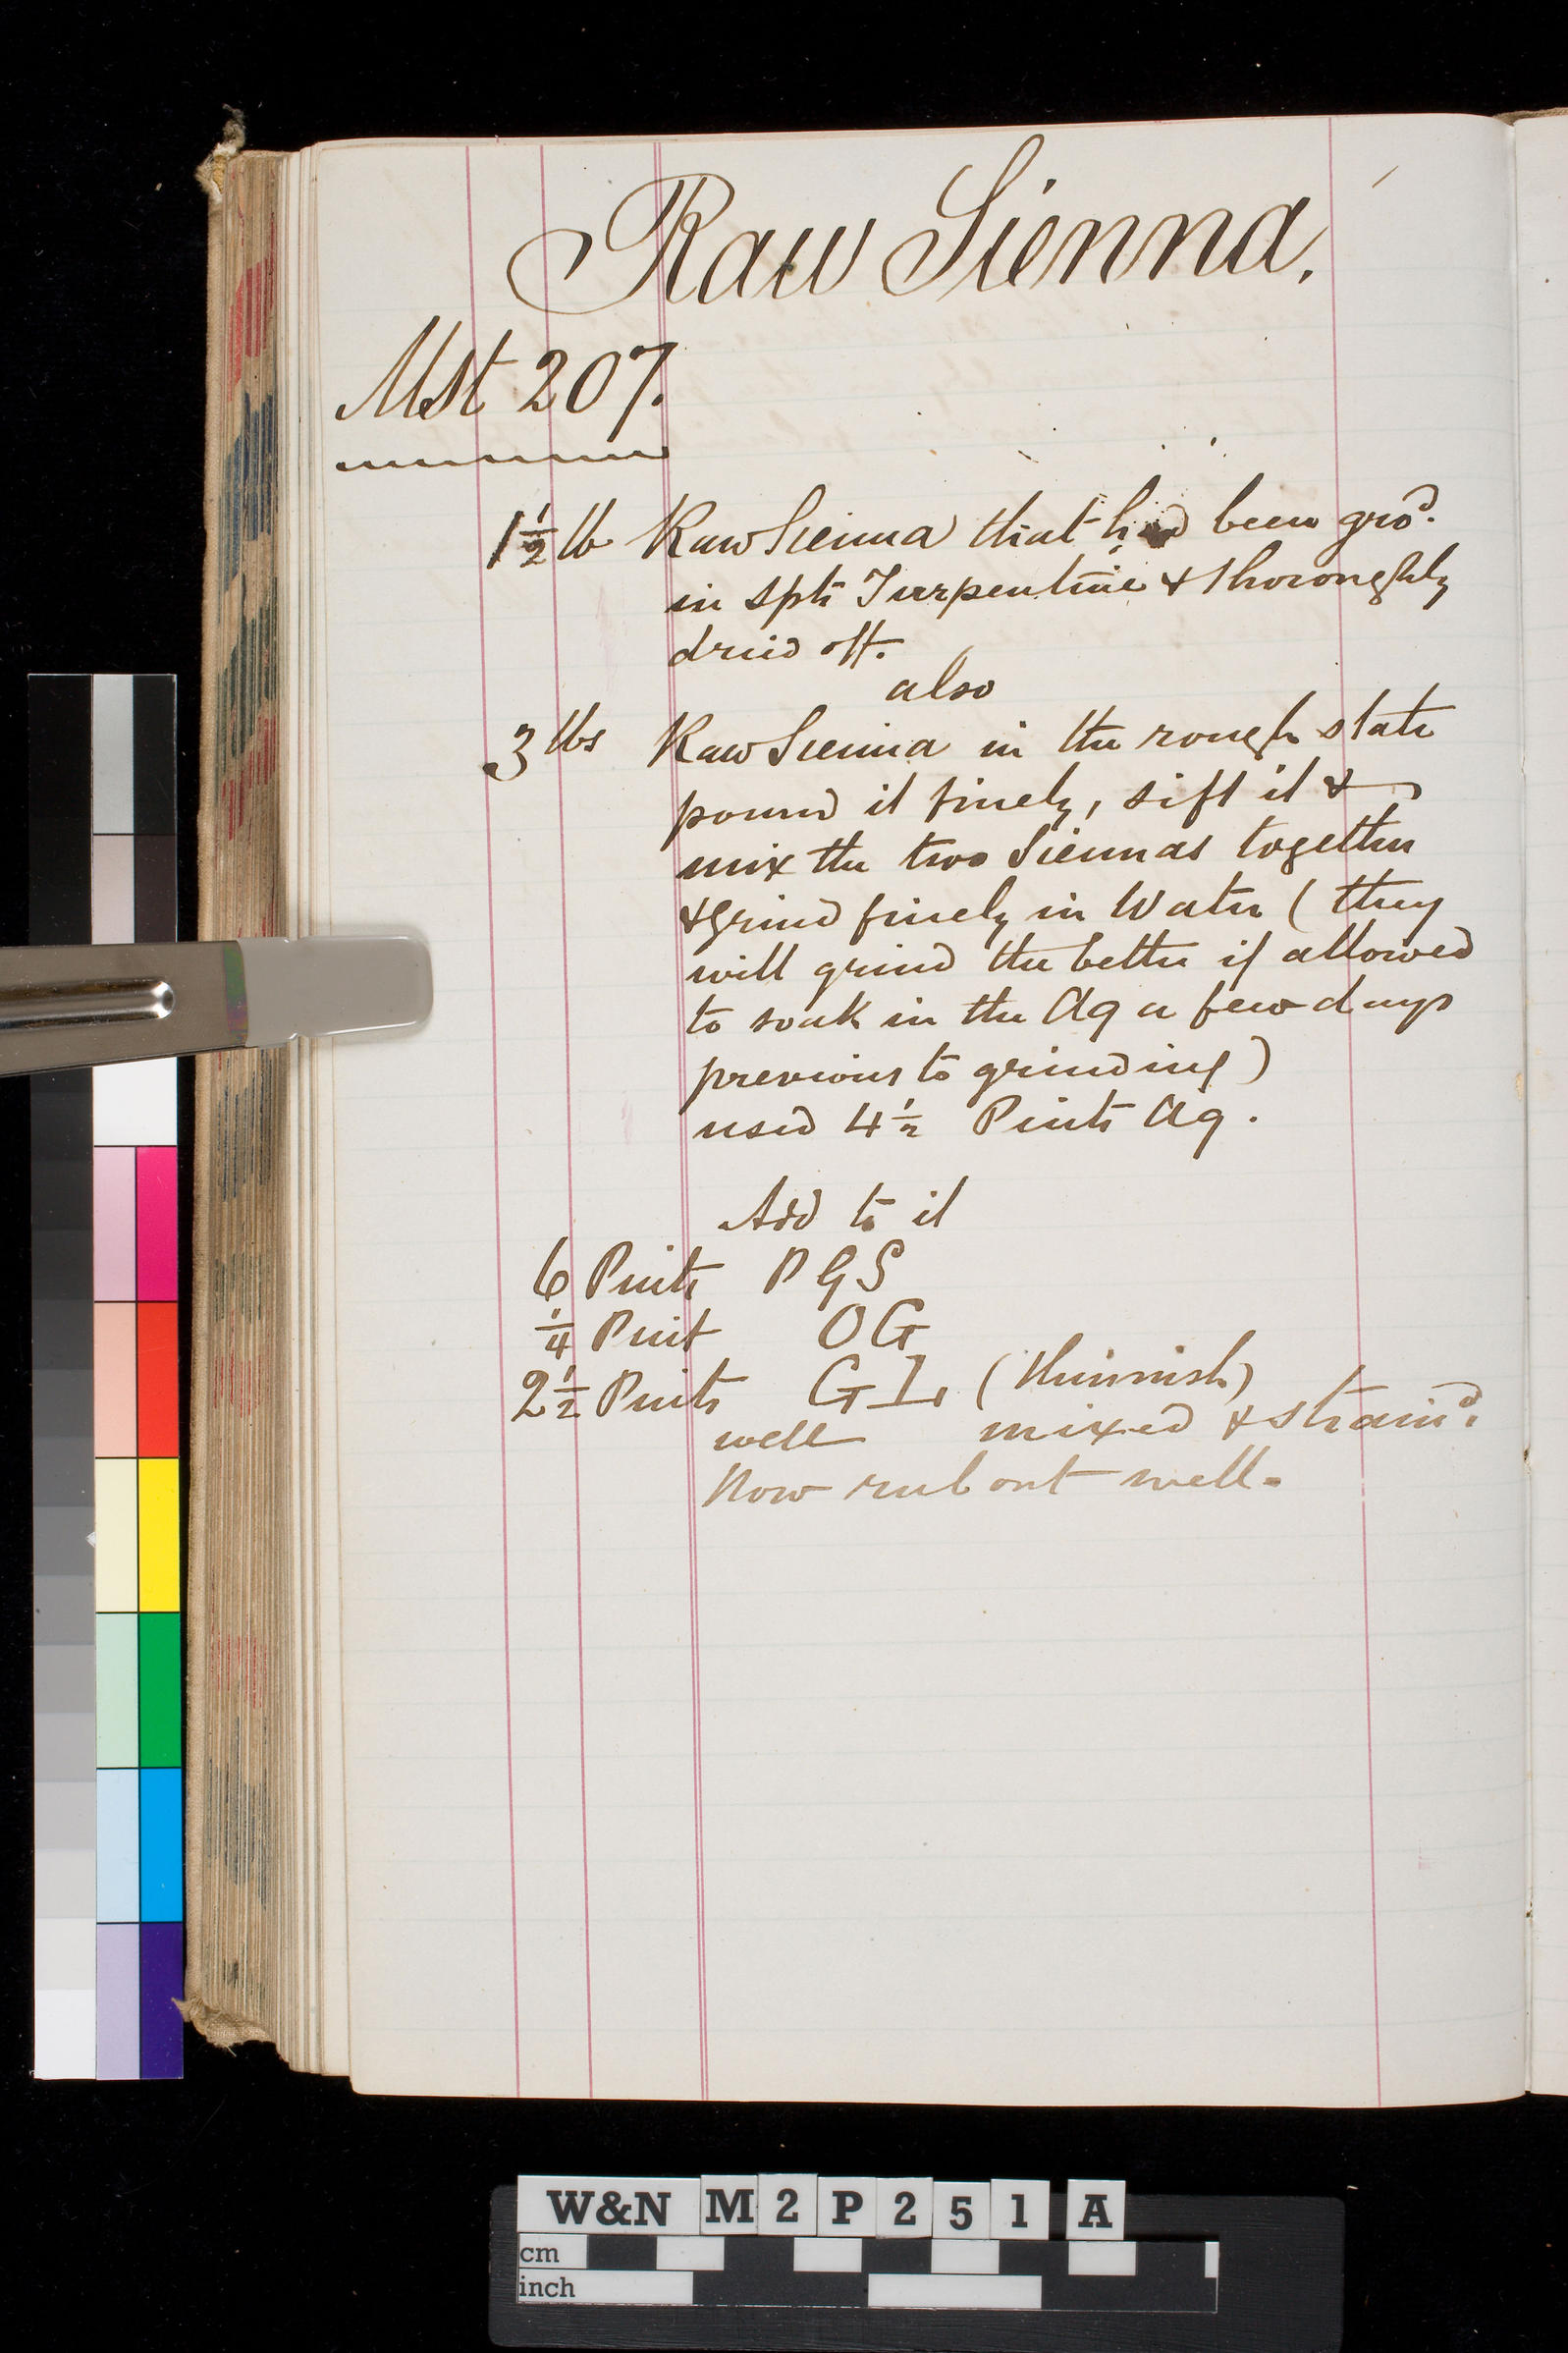 Raw Sienna.
Mst 207.
1½ lb Raw Sienna that had been gro^d.
in Spts Turpentine & thoroughly
dried off.
also
3 lbs Raw Sienna in the rough state
pound it finely, sift it &
mix the two Siennas together
& Grind finely in Water (they
will grind the better if allowed
to soak in the Aq a few days
previous to grinding)
used 4½ Pints Aq.
Add to it
6 Pints P G S
¼ Pint O G
2½ Pints G L (thinnish)
well mixed & strain^d.
Now rub out well.
W&N M2P251 A
cm
inch